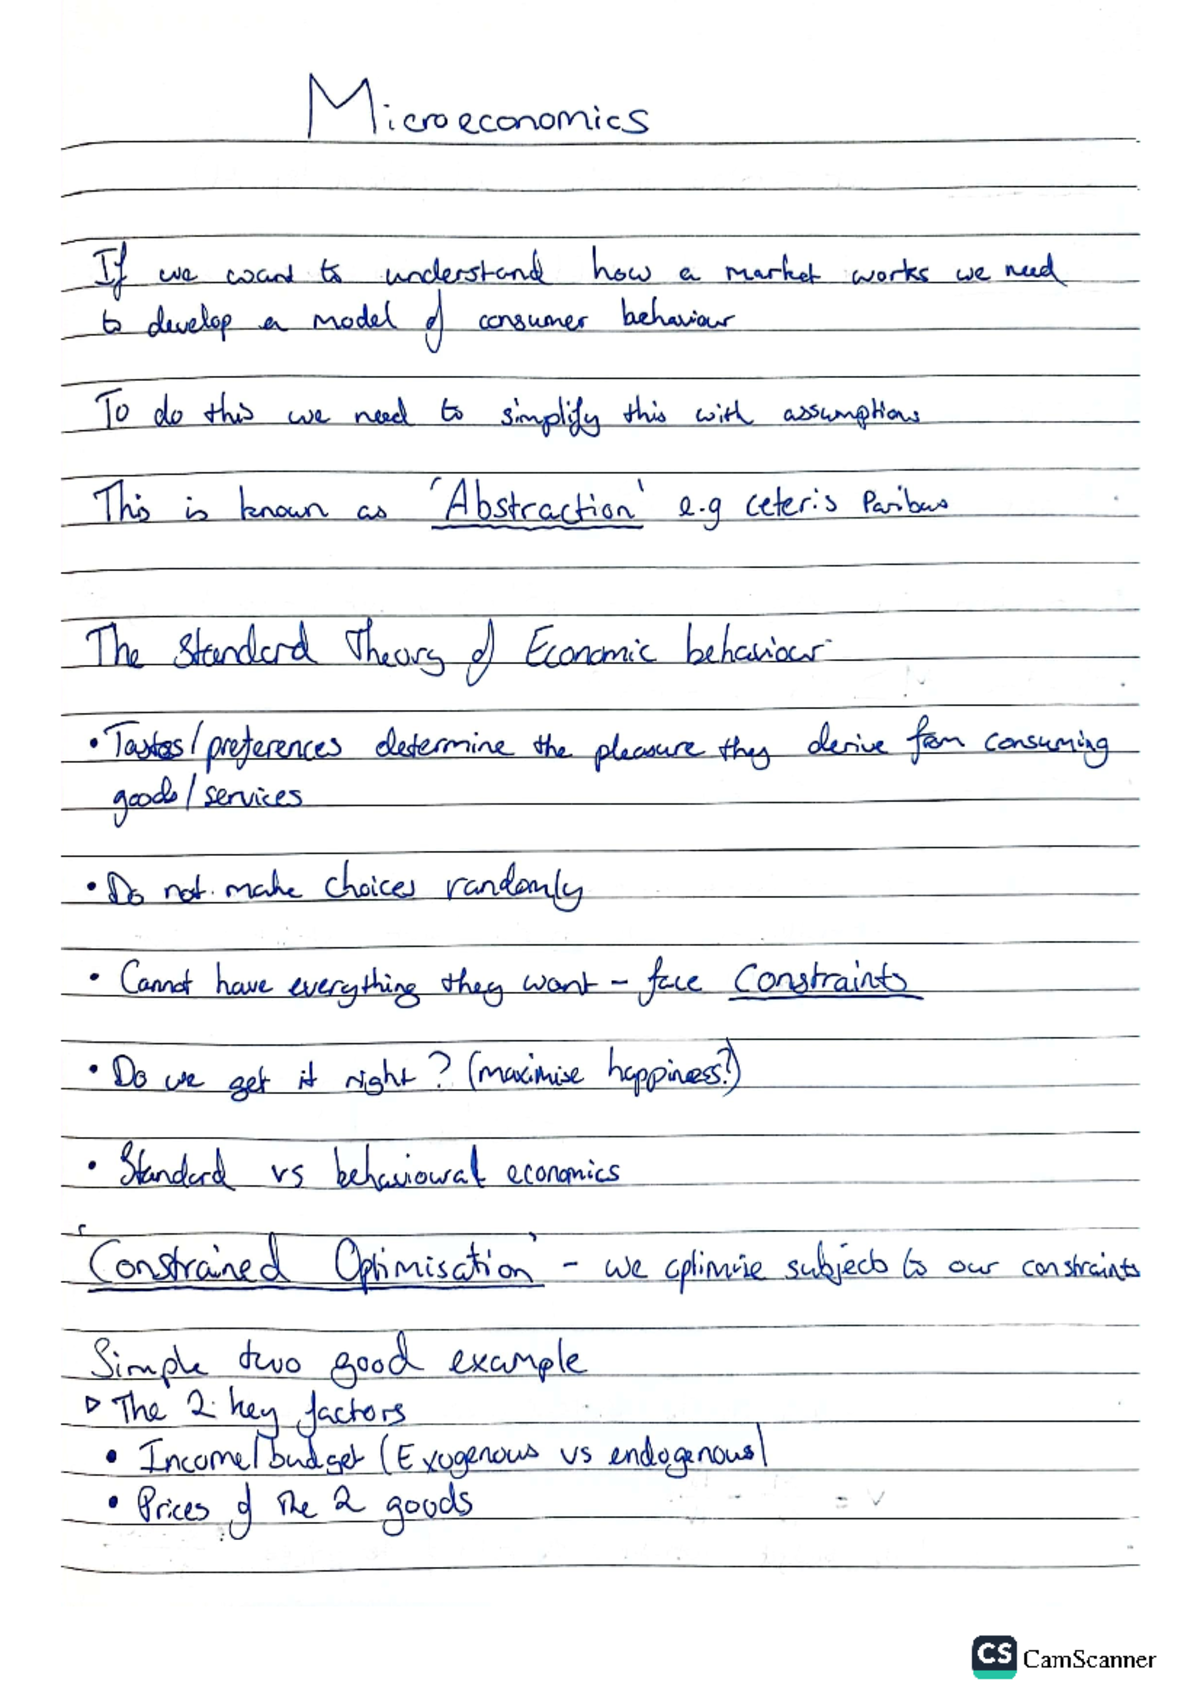 Microeconomics
If we want to understand how a market works we need
to develop a model of consumer behaviour
To do this we need to simplify this with assumptions
This is known as 'Abstraction' e.g ceteris Paribus
The Standard Theory of Economic behaviour
• Tastes/preferences determine the pleasure they derive from consuming
goods/services
• Do not make choices randomly
• Cannot have everything they want – face Constraints
• Do we get it right? (maximise happiness?)
• Standard vs behavioural economics
'Constrained Optimisation' – we optimise subject to our constraints
Simple two good example
▷ The 2 key factors
• Income/budget (Exogenous vs endogenous)
• Prices of the 2 goods
CS CamScanner